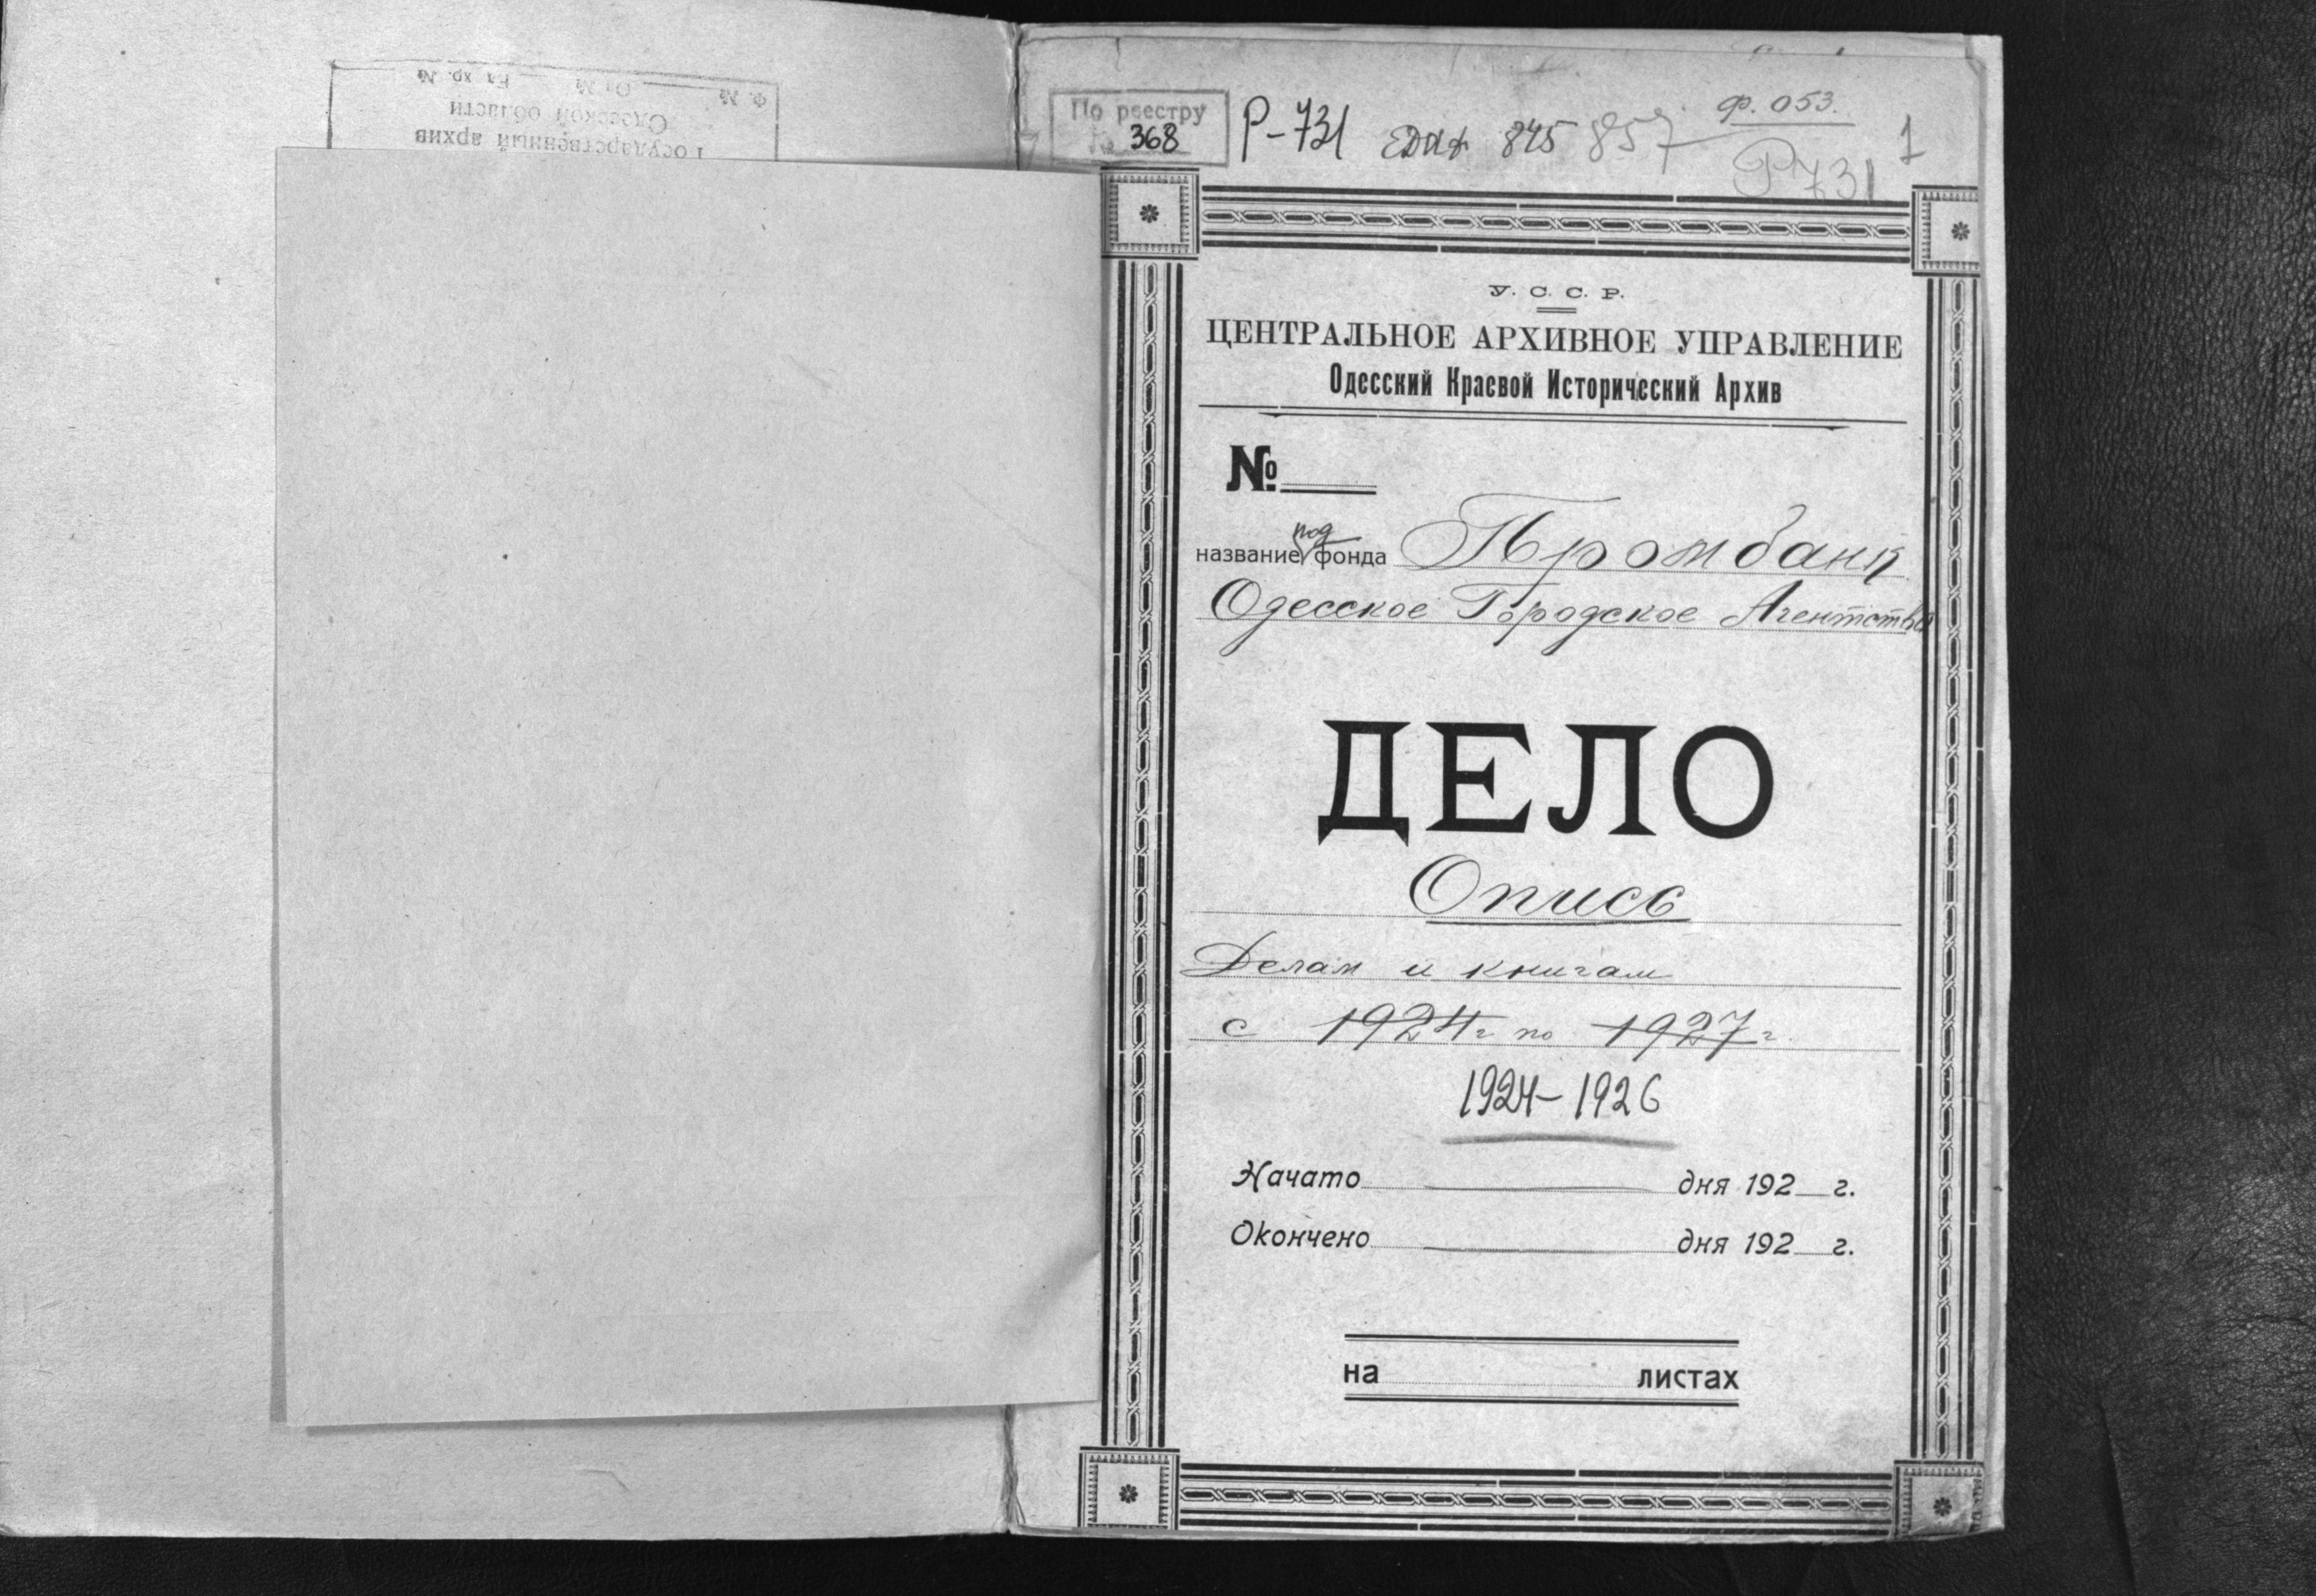 Государственный архив
Одесской области
Ф. № Оп. № Ед. хр. №
По реестру
№ 368
Р-731
845 857
Ф. 053.
Р731
1
У. С. С. Р.
ЦЕНТРАЛЬНОЕ АРХИВНОЕ УПРАВЛЕНИЕ
Одесский Краевой Исторический Архив
№
под
название фонда Промбанк
Одесское Городское Агентство
ДЕЛО
Опись
Делам и книгам
с 1924 г по 1927 г.
1924-1926
Начато дня 192 г.
Окончено дня 192 г.
на листах